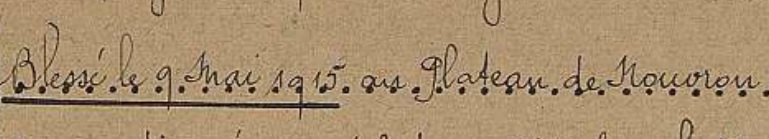 Blessé le 9 Mai 1915. au Plateau de Nouvron.